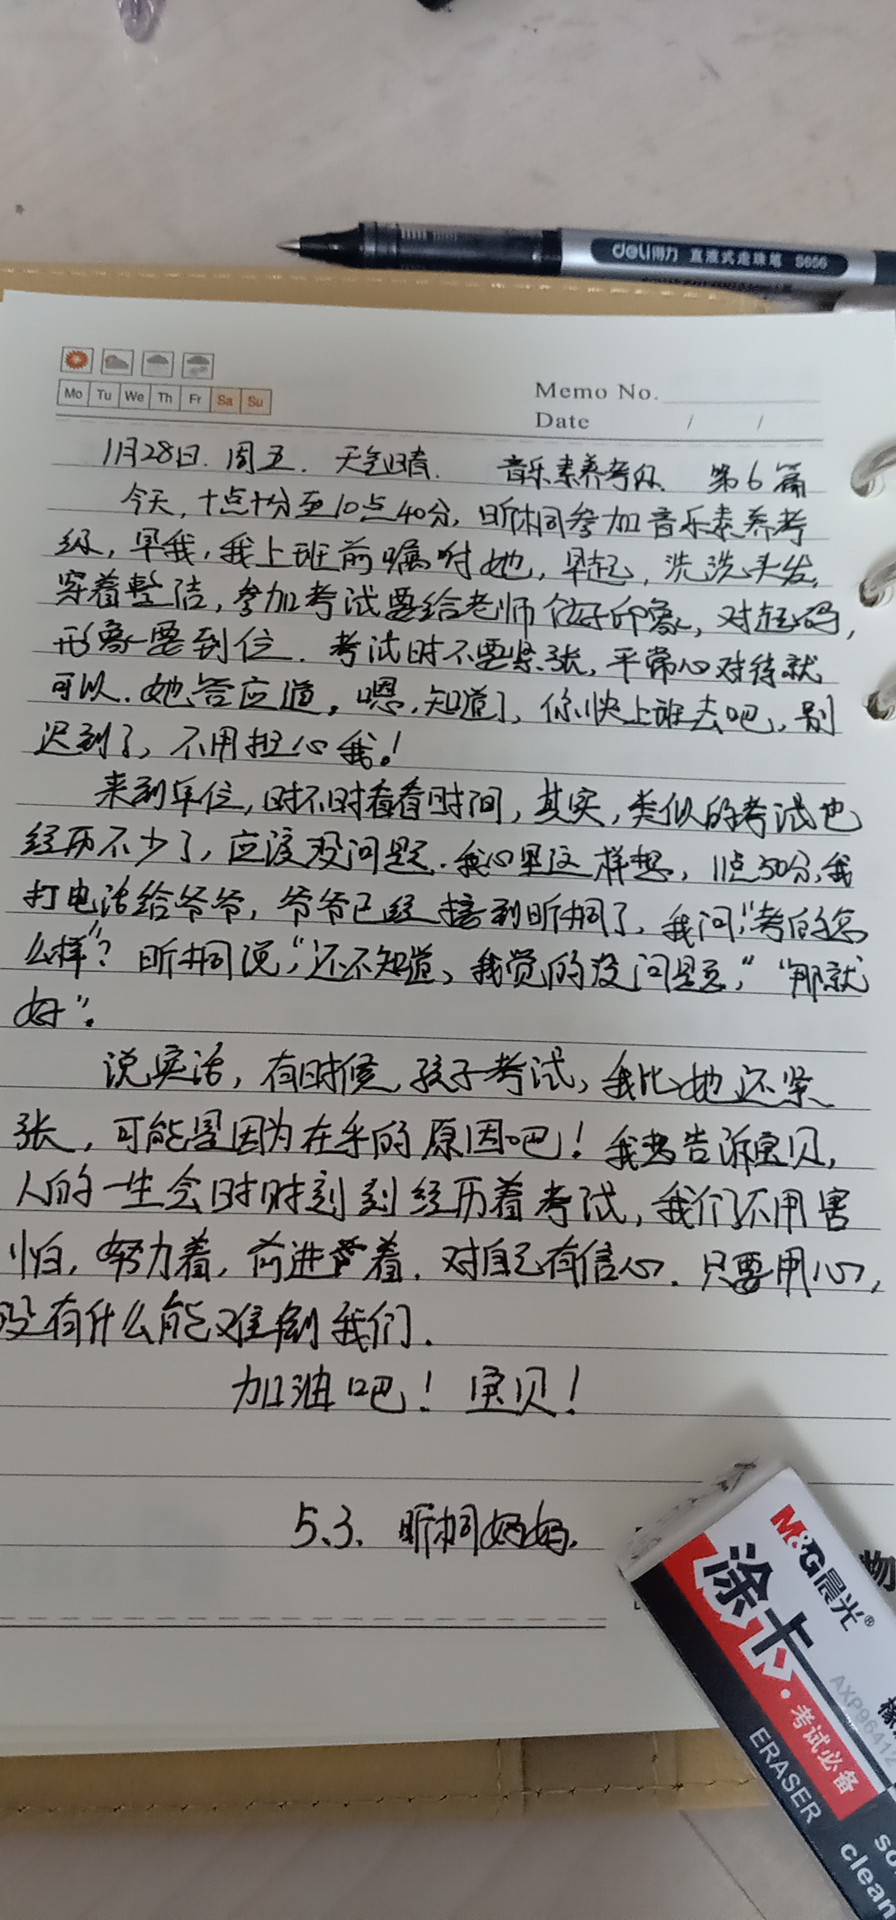 deli得力 直液式走珠笔 S656
Mo Tu We Th Fr Sa Su
Memo No.
Date / /
1月28日. 周五. 天气晴. 音乐素养考级. 第6篇
今天,十点十分至10点40分,昕桐参加音乐素养考
级,早我,我上班前嘱咐她,早起,洗洗头发,
穿着整洁,参加考试要给老师个好印象,对起码,
形象要到位.考试时不要紧张,平常心对待就
可以.她答应道。嗯,知道了,你快上班去吧,别
迟到了,不用担心我!
来到单位,时不时看看时间,其实,类似的考试也
经历不少了,应该没问题.我心里这样想,11点50分,我
打电话给爷爷,爷爷已经接到昕桐了,我问:“考的怎
么样”?昕桐说:“还不知道、我觉的没问题,”“那就
好”。
说实话,有时候,孩子考试,我比她还紧
张,可能是因为在乎的原因吧!我想告诉宝贝,
人的一生会时时刻刻经历着考试,我们不用害
怕,努力着,前进着.对自己有信心.只要用心,
没有什么能难倒我们.
加油吧!宝贝!
5.3、昕桐妈妈.
M&G晨光®
涂卡·考试必备
AXP96412
ERASER